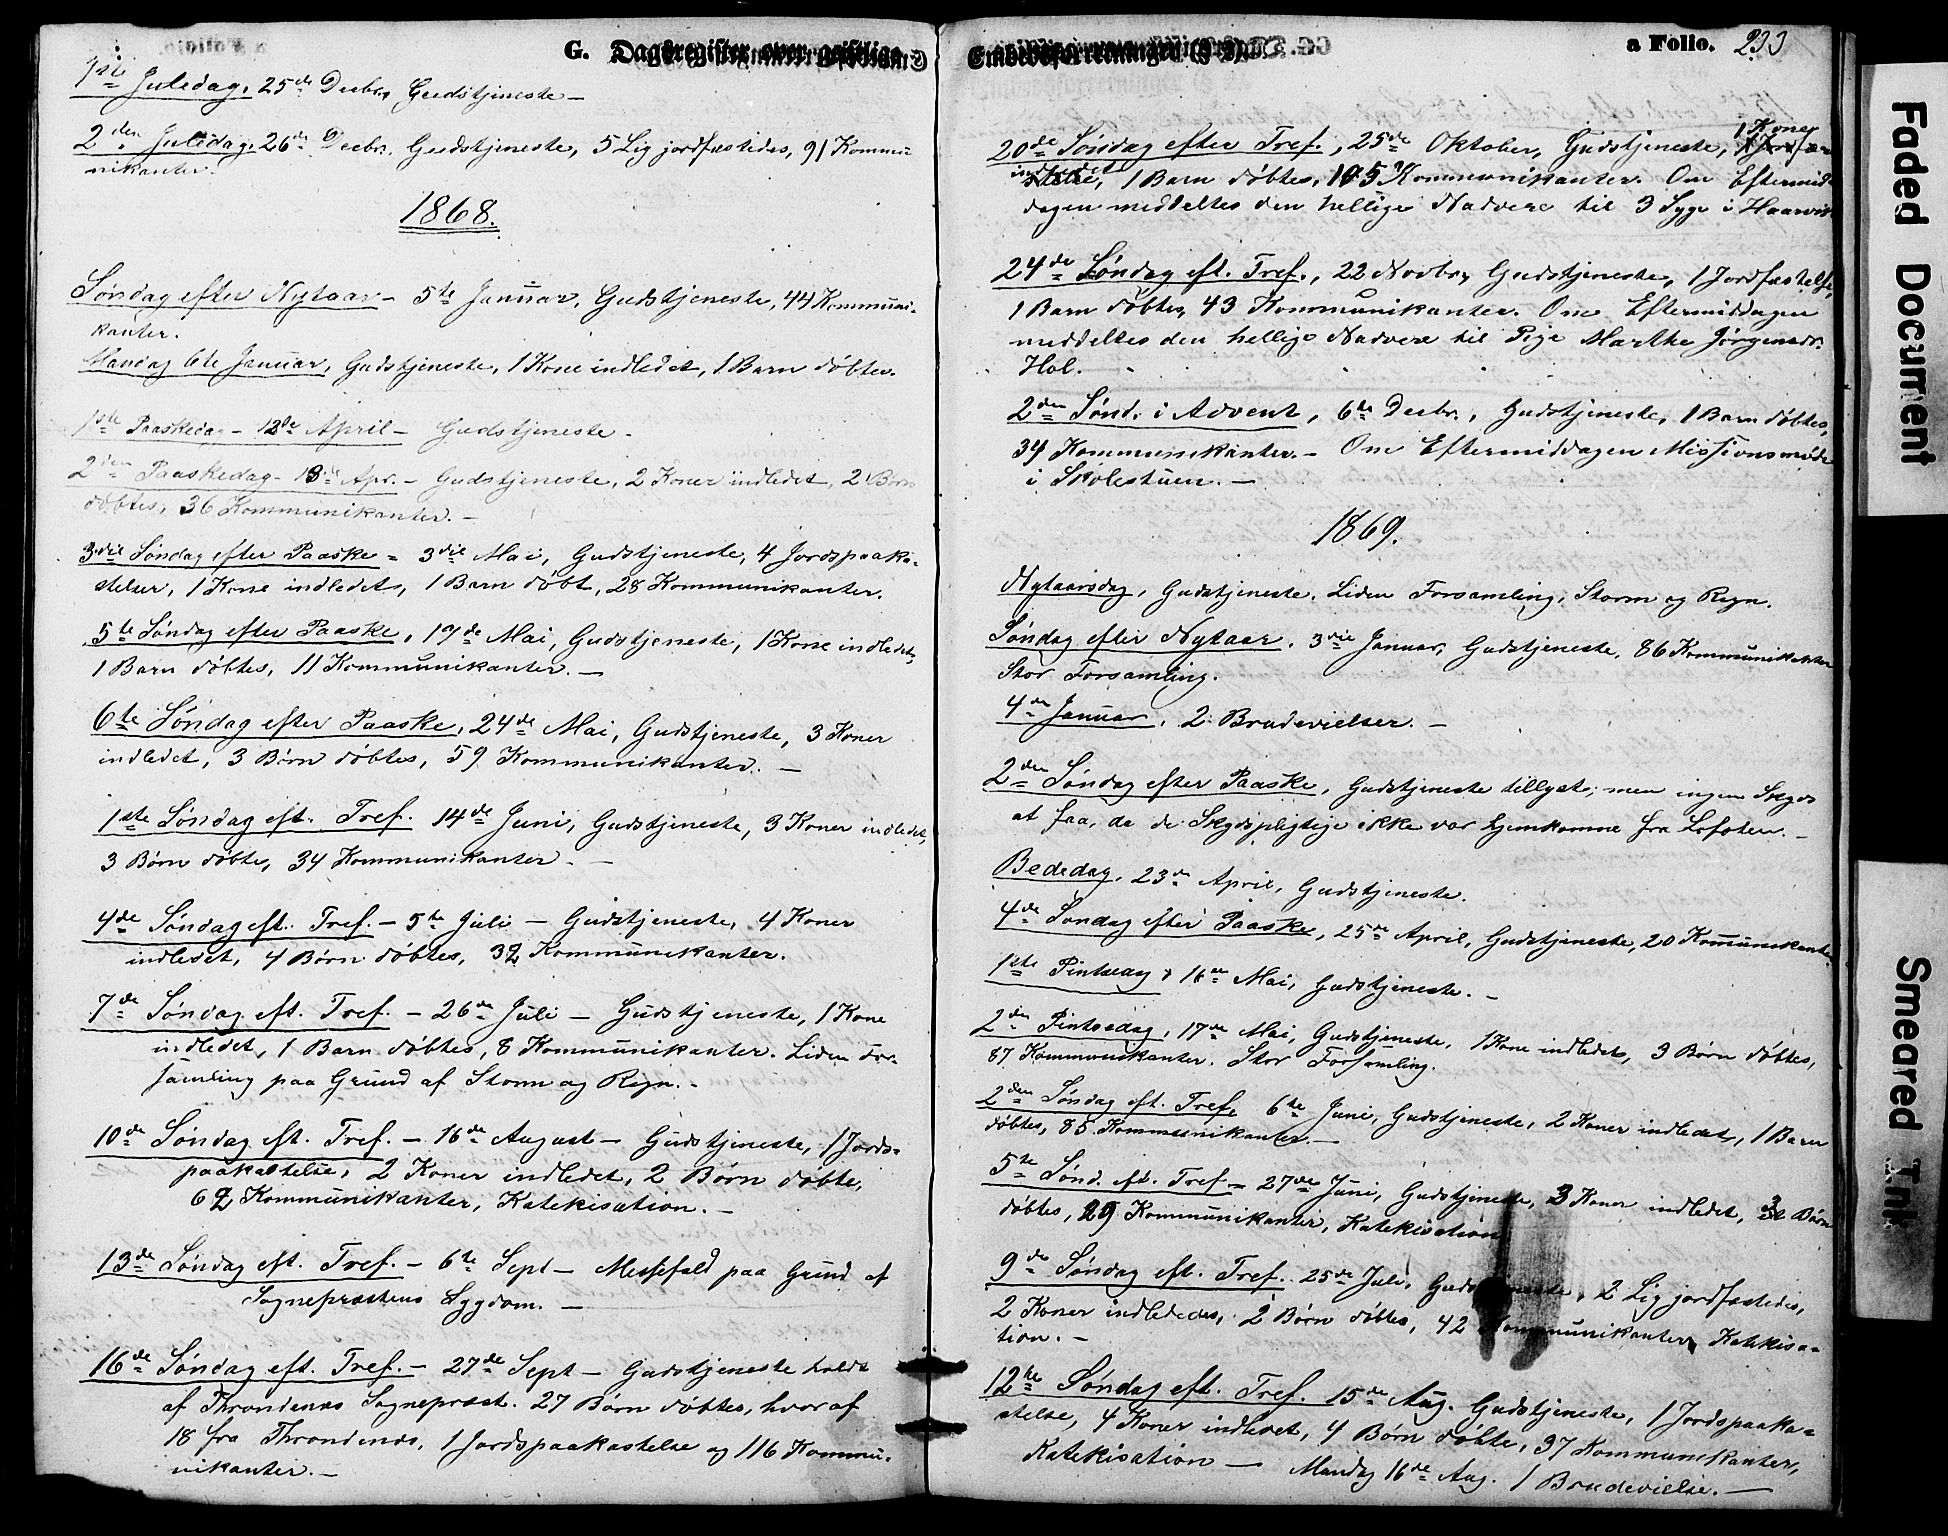 G. Dagsregister over geistlige
1ste Juledag, 25de Decbr, Gudstjeneste –
2den Juledag, 26de Decbr. Gudstjeneste, 5 Lig jordfæstedes, 91 Kommu-
nikanter.
1868.
Søndag efter Nytaar – 5te Januar, Gudstjeneste, 44 Kommuni-
kanter.
Mandag 6te Januar, Gudstjeneste, 1 Kone indledet, 1 Barn døbtes.
1ste Paaskedag – 12te April – Gudstjeneste –
2den Paaskedag – 13de Apr. – Gudstjeneste, 2 Koner indledet, 2 Børn
døbtes, 36 Kommunikanter. –
3die Søndag efter Paaske – 3die Mai, Gudstjeneste, 4 Jordspaaka-
stelser, 1 Kone indledet, 1 Barn døbt, 28 Kommunikanter.
5te Søndag efter Paaske, 17de Mai, Gudstjeneste, 1 Kone indledet,
1 Barn døbtes, 11 Kommunikanter. –
6te Søndag efter Paaske, 24de Mai, Gudstjeneste, 3 Koner
indledet, 3 Børn døbtes, 59 Kommunikanter. –
1ste Søndag eft. Tref. 14de Juni, Gudstjeneste, 3 Koner indledet,
3 Børn døbte, 34 Kommunikanter – –
4de Søndag eft. Tref. – 5te Juli – Gudstjeneste, 4 Koner
indledet, 4 Børn døbtes, 32 Kommunikanter.
7de Søndag eft. Tref. – 26de Juli – Gudstjeneste, 1 Kone
indledet, 1 Barn døbtes, 8 Kommunikanter. Liden For-
samling paa Grund af Storm og Regn. –
10de Søndag eft. Tref. – 16de August – Gudstjeneste, 1 Jords-
paakastelse, 2 Koner indledet, 2 Børn døbte,
62 Kommunikanter, Katekisation. –
13de Søndag eft. Tref. – 6te Sept – Messefald paa Grund af
Sognepræstens Sygdom. –
16de Søndag eft. Tref. – 27de Sept – Gudstjeneste holdt
af Throndenes Sognepræst. 27 Børn døbtes, hvoraf
18 fra Throndenes, 1 Jordspaakastelse og 116 Kommu-
nikanter. –
Embedsforretninger
a Folio. 233
1 Kone
20de Søndag efter Tref., 25de Oktober, Gudstjeneste,
indledet, 1 Barn døbtes, 105 Kommunikanter. Om Eftermid-
dagen meddeltes den hellige Nadvere til 3 Syge i Haarvik
24de Søndag eft. Tref., 22 Novbr, Gudstjeneste, 1 Jordfæstelse,
1 Barn døbtes, 43 Kommunikanter. Om Eftermiddagen
meddeltes den hellige Nadvere til Pige Marthe Jørgensdr.
Hol.
2den Sønd. i Advent, 6te Decbr., Gudstjeneste, 1 Barn døbtes,
34 Kommunikanter. – Om Eftermiddagen Missionsmøde
i Skolestuen. –
1869.
Nytaarsdag, Gudstjeneste. Liden Forsamling, Storm og Regn.
Søndag efter Nytaar. 3die Januar, Gudstjeneste, 86 Kommunikanter
Stor Forsamling.
4de Januar, 2 Brudevielser. –
2den Søndag efter Paaske, Gudstjeneste tillyst; men ingen Skyds
at faa, da de Skydspligtige ikke var hjemkomne fra Lofoten. –
Bededag, 23de April, Gudstjeneste.
4de Søndag efter Paaske, 25de April, Gudstjeneste, 20 Kommunikanter.
1ste Pintsedag, 16de Mai, Gudstjeneste. –
2den Pintsedag, 17de Mai, Gudstjeneste, 1 Kone indledet, 3 Børn døbtes,
87 Kommunikanter. Stor Forsamling.
2den Søndag eft. Tref, 6te Juni, Gudstjeneste, 2 Koner indledet, 1 Barn
døbtes, 85 Kommunikanter. –
5te Sønd. eft. Tref – 27de Juni, Gudstjeneste, 3 Koner indledet, 3 Børn
døbtes, 29 Kommunikanter, Katekisation
9de Søndag eft. Tref. 25de Juli, Gudstjeneste, 2 Lig jordfæstedes,
2 Koner indlededes, 2 Børn døbtes, 42 Kommunikanter, Katekisa-
tion. –
12te Søndag eft. Tref. 15de Aug. Gudstjeneste, 1 Jordspaaka-
stelse, 4 Koner indledet, 4 Børn døbte, 37 Kommunikanter,
Katekisation – Mandag 16de Aug. 1 Brudevielse. –
Faded Document
Smeared Ink